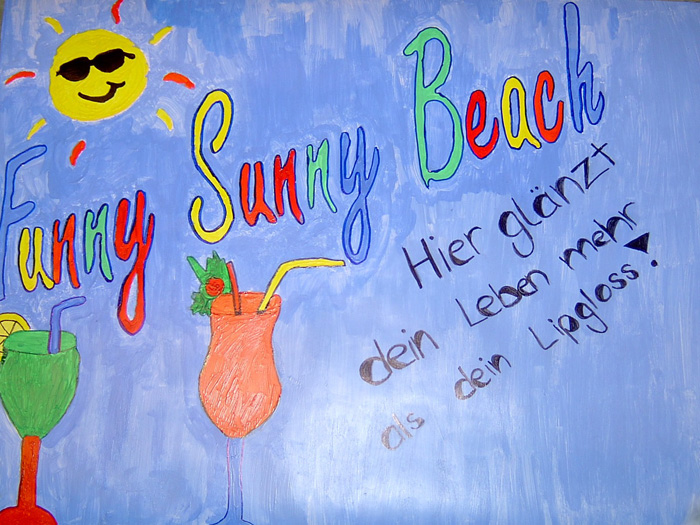 Funny Sunny Beach
Hier glänzt
dein Leben mehr
als dein Lipgloss!